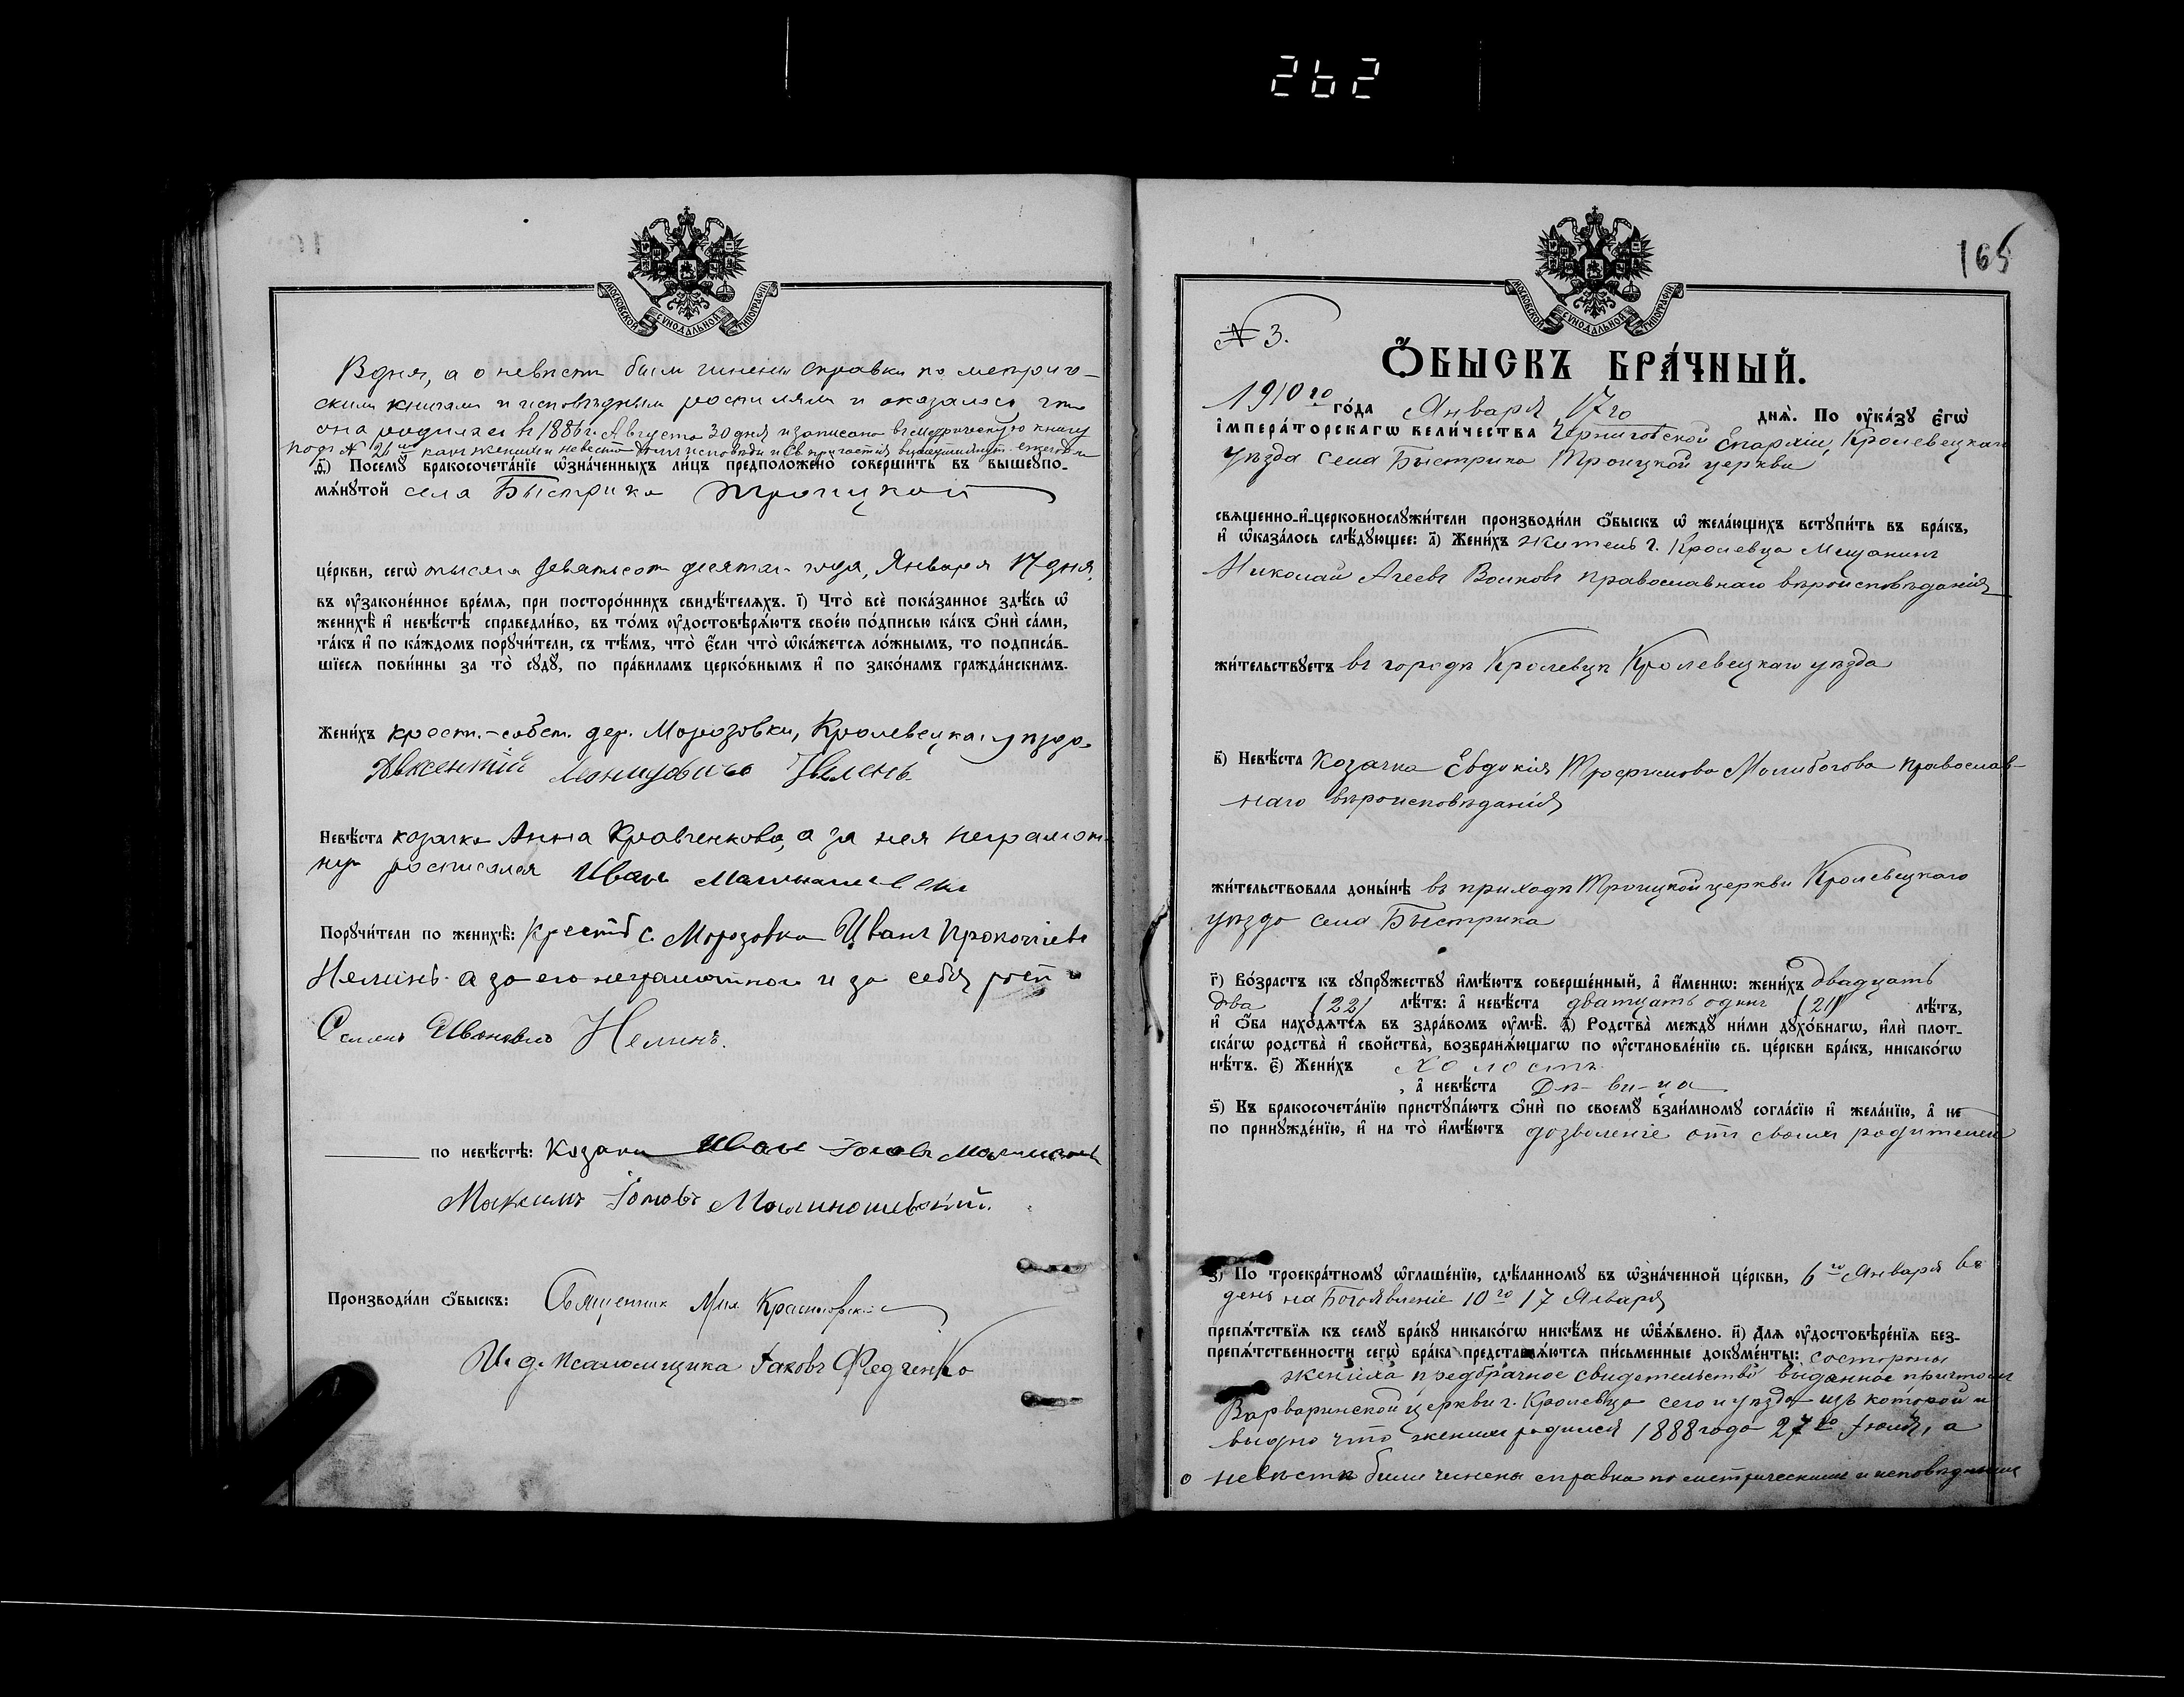 262
МОСКОВСКОЙ СУНОДАЛЬНОЙ ТИПОГРАФІИ
8 дня, а о невѣстѣ были чинены справки по метриче-
скимъ книгамъ и исповѣднымъ росписямъ и оказалось что
она родилась въ 1886 г. Августа 30 дня и записана въ метрическую книгу
подъ № 21 какъ женихъ и невѣста были исповѣди и Св. причастія ежегодно
ѳ҃) Посемꙋ̀ бракосочета́нїе ѡ҆зна́ченныхъ ли́цъ предположено̀ соверши́ть въ вышеꙋпо-
мѧ́нꙋтой села Быстрика Троицкой
це́ркви, сегѡ̀ тысяча девятьсотъ десятаго года, Января 17 дня,
въ ᲂу҆зако́ненное вре́мѧ, при посторо́ннихъ свидѣ́телѧхъ. і҃) Что̀ всѐ пока́занное здѣ́сь ѡ҆
женихѣ̀ и҆ невѣ́стѣ справедли́во, въ то́мъ ᲂу҆достовѣрѧ́ютъ свое́ю по́дписью ка́къ ѻ҆нѝ са́ми,
та́къ и҆ по ка́ждомъ порꙋчи́тели, съ тѣ́мъ, что̀ є҆́сли что̀ ѡ҆ка́жетсѧ ло́жнымъ, то подписа́в-
шїесѧ пови́нны за то̀ сꙋдꙋ̀, по пра́виламъ церко́внымъ и҆ по зако́намъ гражда́нскимъ.
Жени́хъ крест.-собст. дер. Морозовки, Кролевецкаго уѣзда
Авксентій Нелинъ
Невѣ́ста козачка Анна Кравченкова, а за нея неграмот-
ную росписался Иванъ
Порꙋчи́тели по женихѣ̀: Крест. с. Морозовка Иванъ Прокопіевъ
Нелинъ а за его неграмотнаго и за себя росп
Семенъ Ивановъ Нелинъ.
по невѣ́стѣ: Козаки Иванъ Іовъ
Максимъ Іововъ
Производи́ли ѻ҆́быскъ: Священникъ Мих. Красновскій
И. д. псаломщика Іаковъ Федченко
165
МОСКОВСКОЙ СУНОДАЛЬНОЙ ТИПОГРАФІИ
№ 3.
Ѻ҆́БЫСКЪ БРА́ЧНЫЙ.
1910го го́да Января 17го днѧ̀. По ᲂу҆ка́зꙋ є҆гѡ̀
і҆мпера́торскагѡ вели́чества Черниговской Епархіи, Кролевецкаго
уѣзда села Быстрика Троицкой церкви
свѧще́нно-и҆-церковнослꙋжи́тели производи́ли ѻ҆́быскъ ѡ҆ жела́ющихъ встꙋпи́ть въ бра́къ,
и҆ ѡ҆каза́лось слѣ́дꙋющее: а҃) Жени́хъ житель г. Кролевца Мещанинъ
Николай Агеевъ Волковъ православнаго вѣроисповѣданія
жи́тельствꙋетъ въ городѣ Кролевцѣ Кролевецкаго уѣзда
в҃) Невѣ́ста Козачка Евдокія Трофимова Молибогова православ-
наго вѣроисповѣданія
жи́тельствовала доны́нѣ въ приходѣ Троицкой церкви Кролевецкаго
уѣзда села Быстрика
г҃) Во́зрастъ къ сꙋпрꙋ́жествꙋ и҆мѣ́ютъ соверше́нный, а҆ и҆́меннѡ: жени́хъ двадцать
два /22/ лѣ́тъ: а҆ невѣ́ста двадцать одинъ /21/ лѣ́тъ,
и҆ ѻ҆́ба нахо́дѧтсѧ въ здра́вомъ ᲂу҆мѣ̀. д҃) Родства̀ междꙋ ни́ми дꙋхо́внагѡ, и҆лѝ плот-
ска́гѡ родства̀ и҆ свойства̀, возбранѧ́ющагѡ по ᲂу҆становле́нїю св. це́ркви бра́къ, никако́гѡ
нѣ́тъ. є҃) Жени́хъ Холостъ
, а҆ невѣ́ста Дѣ-ви-ца
ѕ҃) Къ бракосочета́нїю пристꙋпа́ютъ ѻ҆нѝ по своемꙋ̀ взаи́мномꙋ согла́сїю и҆ жела́нїю, а҆ не
по принꙋжде́нїю, и҆ на то̀ и҆мѣ́ютъ дозволеніе отъ своихъ родителей
з҃) По троекра́тномꙋ ѡ҆глаше́нїю, сдѣ́ланномꙋ въ ѡ҆зна́ченной це́ркви, 6го Января въ
день на Богоявленіе 10го 17 Января
препѧ́тствїѧ къ семꙋ̀ бра́кꙋ никако́гѡ никѣ́мъ не ѡ҆б̾ѧ́влено. и҃) Для ᲂу҆достовѣре́нїѧ без-
препѧ́тственности сегѡ̀ бра́ка представлѧ́ютсѧ пи́сьменные докꙋме́нты: со стороны
жениха предбрачное свидетельство выданное причтомъ
Варваринской церкви г. Кролевца сего и уѣзда изъ которой и
видно что женихъ родился 1888 года 27го Іюля, а
о невѣстѣ были чинены справка по метрическимъ и исповѣднымъ